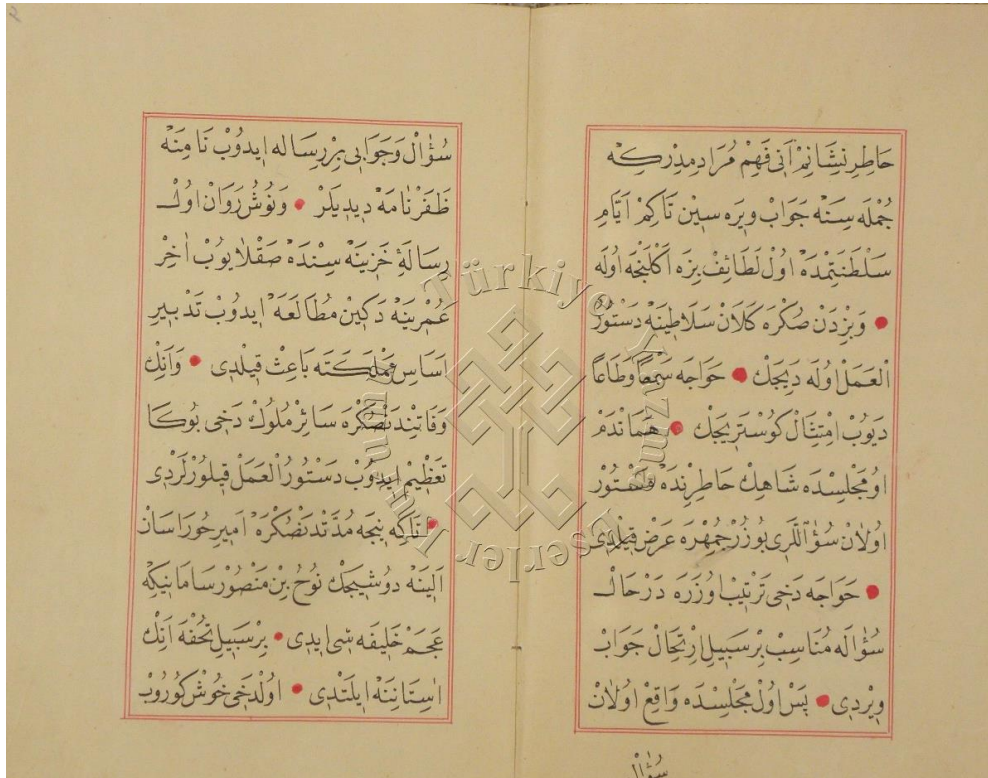 حَاطِرِ نِشَانِمْ اَنِی فَهِمْ مُرَادِمِدِرْ كِه
جُمْلَه سِنَه جَوَابْ وِیرَه سِینْ تَاكِمْ اَیَّامِ
سَلْطَنَتِمْدَه اُولْ لَطَائِفْ بِزَه اَكْلَنْجَه اُولَه
وَبِزْدَنْ صُكْرَه كَلَانْ سَلَاطِینَه دَسْتُورُ
الْعَمَلْ اُولَه دِیجَكْ حَوَاجَه سَمْعًا وَطَاعًا
دِیُوبْ اِمْتِثَالْ كُوسْتَرِیجَكْ هَمَانْدَمْ
اُو مَجْلِسْدَه شَاهِكْ حَاطِرِنْدَه مَسْتُورْ
اُولَانْ سُؤَاللَرِی بُوزُرْجُمْهِرَه عَرْضْ قِیلْدِی
حَوَاجَه دَخِی تَرْتِیبْ اُوزَرَه دَرْحَالْ
سُؤَالَه مُنَاسِبْ بِرْ سَبِیلِ اِرْتِحَالْ جَوَابْ
وِیرْدِی پَسْ اُولْ مَجْلِسْدَه وَاقِعْ اُولَانْ
سُؤَالْ
سُؤَالْ وَجَوَابِی بِرْ رِسَالَه اِیدُوبْ نَامِنَه
ظَفَرْنَامَه دِیدِیلَرْ وَنُوشُرَوَانْ اُولْ
رِسَالَهٔ خَزِینَه سِنْدَه صَقْلَایُوبْ اٰخِرْ
عُمْرِینَه دَكِینْ مُطَالَعَه اِیدُوبْ تَدْبِیرِ
اَسَاسِ مَمْلَكَتَه بَاعِثْ قِیلْدِی وَاَنِكْ
وَفَاتِینْدَنْصُكْرَه سَائِرْ مُلُوكْ دَخِی بُوكَا
تَعْظِیمْ اِیدُوبْ دَسْتُورُ الْعَمَلْ قِیلُورْلَرْدِی
تَاكِه نِیجَه مُدَّتْدَنْصُكْرَه اَمِیرِ حُورَاسَانْ
اَلِینَه دُوشِیجَكْ نُوحْ بِنْ مَنْصُورْ سَامَانِیكِه
عَجَمْ خَلِیفَه سِی اِیدِی بِرْ سَبِیلِ تُحْفَه اَنِكْ
اٰسِتَانِنَه اِیلَتْدِی اُولْدَخِی خُوشْ كُورُوبْ